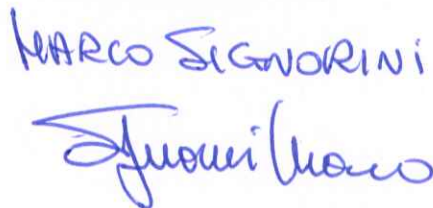 MARCO SIGNORINI
Signorini Marco